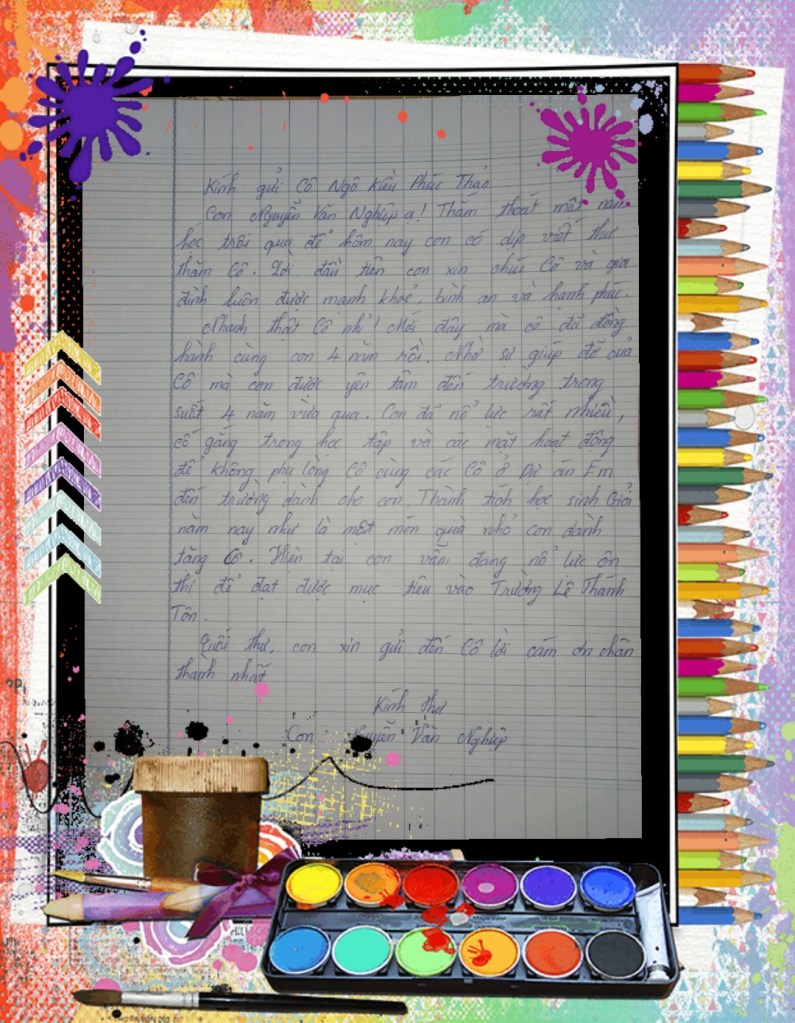 Kính gửi Cô Ngô Kiều Phúc Thảo
Con Nguyễn Văn Nghiệp ạ! Thấm thoát một năm
học trôi qua để hôm nay con có dịp viết thư
thăm Cô. Lời đầu tiên con xin chúc Cô và gia
đình luôn được mạnh khoẻ, bình an và hạnh phúc.
Nhanh thật Cô nhỉ! Mới đây mà cô đã đồng
hành cùng con 4 năm rồi. Nhờ sự giúp đỡ của
Cô mà con được yên tâm đến trường trong
suốt 4 năm vừa qua. Con đã nổ lực rất nhiều,
cố gắng trong học tập và các mặt hoạt động
để không phụ lòng Cô cùng các Cô ở Dự án Em
đến trường dành cho con. Thành tích học sinh Giỏi
năm nay như là một món quà nhỏ con dành
tặng Cô. Hiện tại con vẫn đang nổ lực ôn
thi để đạt được mục tiêu vào Trường Lê Thánh
Tôn.
Cuối thư, con xin gửi đến Cô lời cám ơn chân
thành nhất
Kính thư
Con Nguyễn Văn Nghiệp